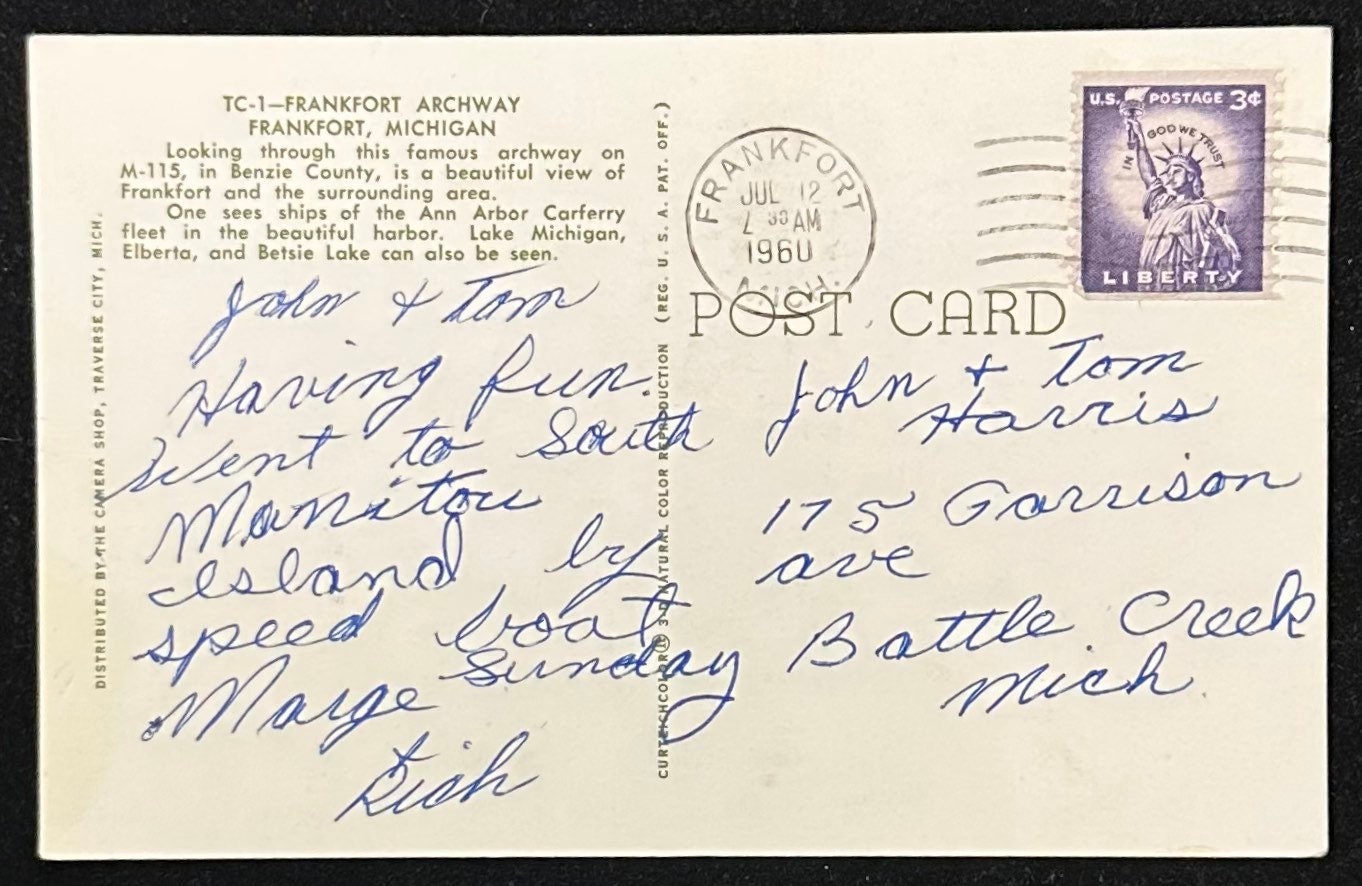 TC-1—FRANKFORT ARCHWAY
FRANKFORT, MICHIGAN
Looking through this famous archway on
M-115, in Benzie County, is a beautiful view of
Frankfort and the surrounding area.
One sees ships of the Ann Arbor Carferry
fleet in the beautiful harbor. Lake Michigan,
Elberta, and Betsie Lake can also be seen.
DISTRIBUTED BY THE CAMERA SHOP, TRAVERSE CITY, MICH.
John + Tom
Having fun.
Went to South
Manitou
Island by
speed boat
Sunday
Marge
+
Rich
CURTEICHCOLOR® 3-D NATURAL COLOR REPRODUCTION (REG. U. S. A. PAT. OFF.)
FRANKFORT
JUL 12
30 AM
1960
MICH.
U.S. POSTAGE 3¢
IN GOD WE TRUST
LIBERTY
POST CARD
John + Tom
Harris
175 Garrison
ave
Battle Creek
Mich.